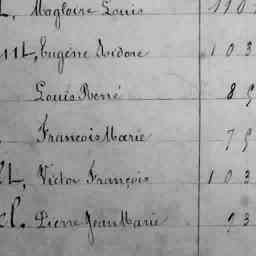 L, Magloire Louis 110
L, Eugène Isidore 103
Louis René 85
François Marie 75
L, Victor François 103
l. Pierre Jean Marie 93